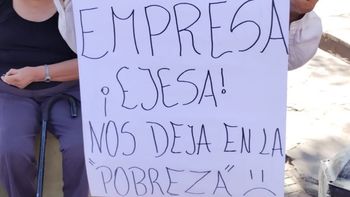 EMPRESA
¡EJESA!
NOS DEJA EN LA
"POBREZA" :(